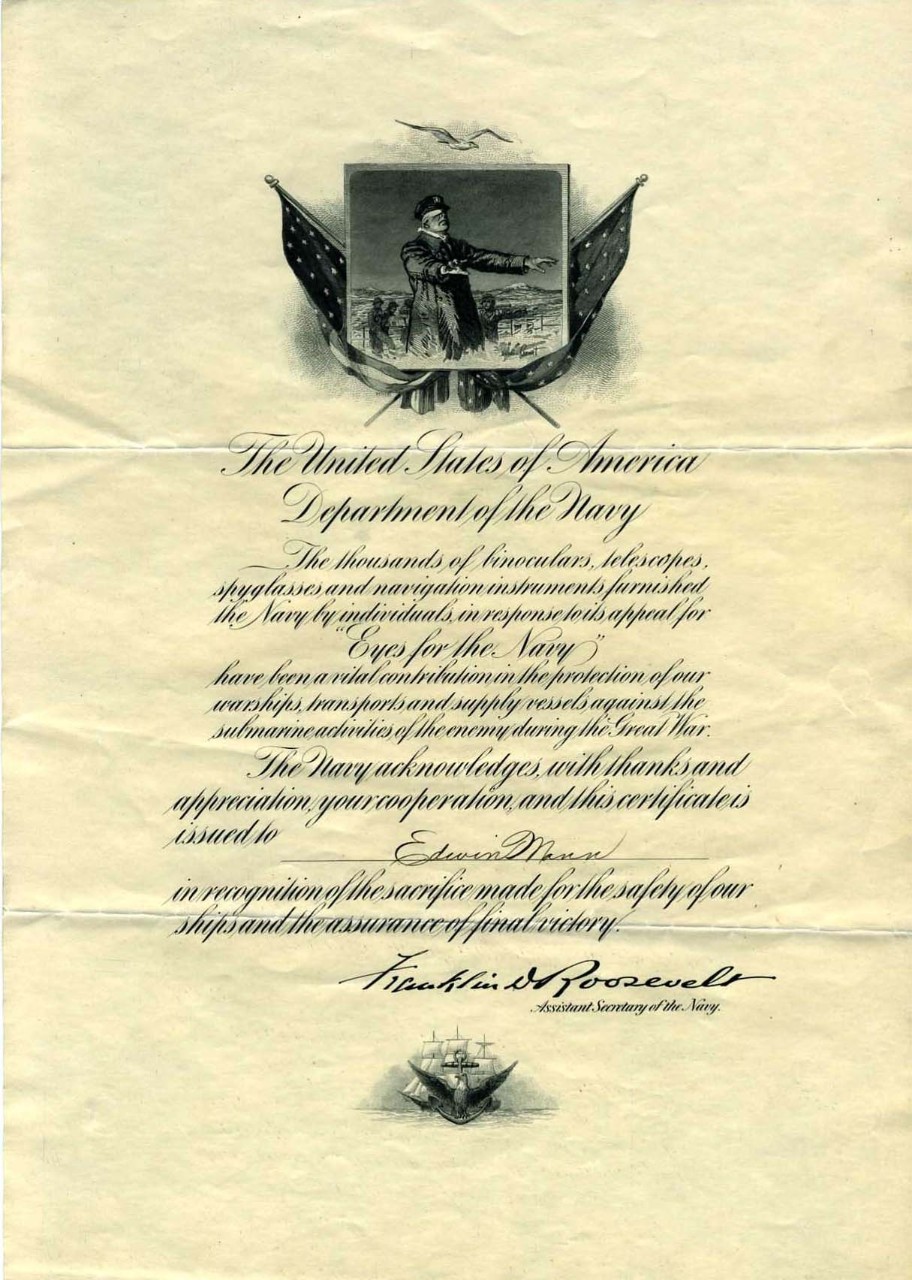 The United States of America
Department of the Navy
The thousands of binoculars, telescopes,
spyglasses and navigation instruments furnished
the Navy by individuals, in response to its appeal for
"Eyes for the Navy"
have been a vital contribution in the protection of our
warships, transports and supply vessels against the
submarine activities of the enemy during the Great War.
The Navy acknowledges, with thanks and
appreciation, your cooperation, and this certificate is
issued to
Edwin Mann
in recognition of the sacrifice made for the safety of our
ships and the assurance of final victory.
Franklin D Roosevelt
Assistant Secretary of the Navy.